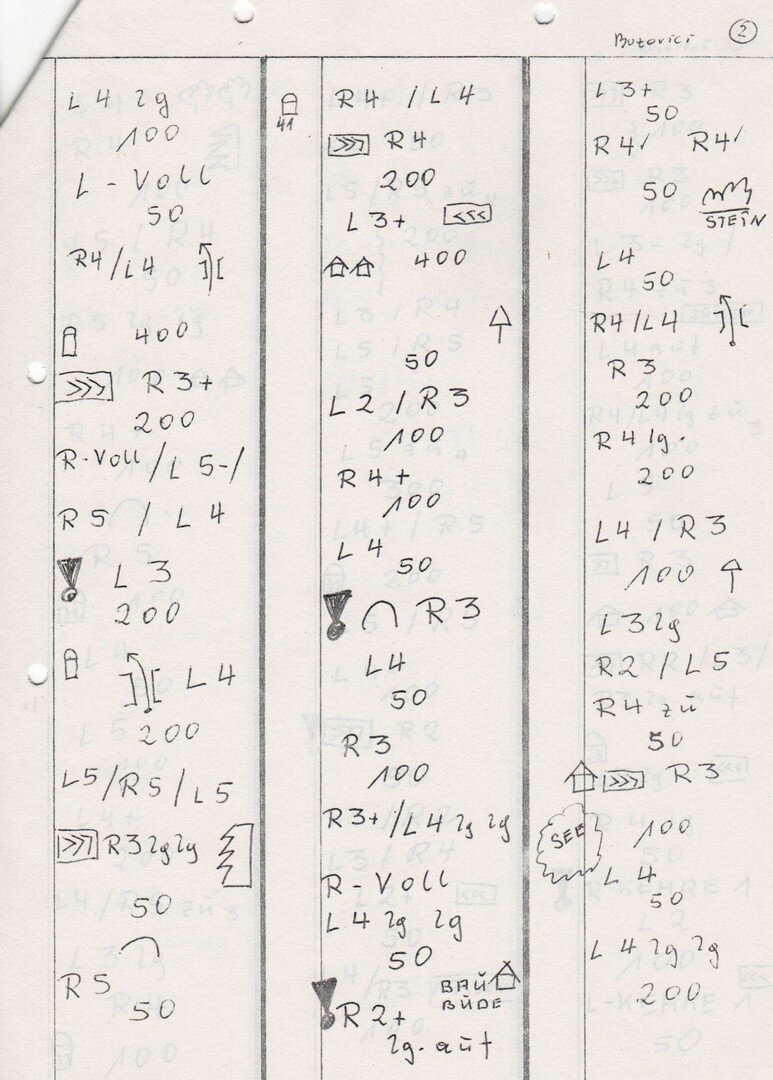 Butovici 2
L 4 lg
100
L - Voll
50
R4/L4
400
>>> R 3+
200
R-Voll/L 5-/
R 5 / L 4
! L 3
200
L 4
200
L5/R5/L5
>>> R3 lg lg
50
R 5
50
41
R4 / L4
>>> R4
200
L 3+ <<<
400
50
L 2 / R 3
100
R 4 +
100
L 4
50
! R 3
L4
50
R 3
100
R3+/L4 lg lg
R - Voll
L 4 lg lg
50
BAU
BUDE
! R 2+
lg. auf
L 3+
50
R4/ R4/
50
STEIN
L4
50
R4/L4
R 3
200
R4 lg.
200
L4 / R3
100
L 3 lg
R2 / L5
R4 zu
50
>>> R3
SEE 100
L 4
50
L 4 lg lg
200